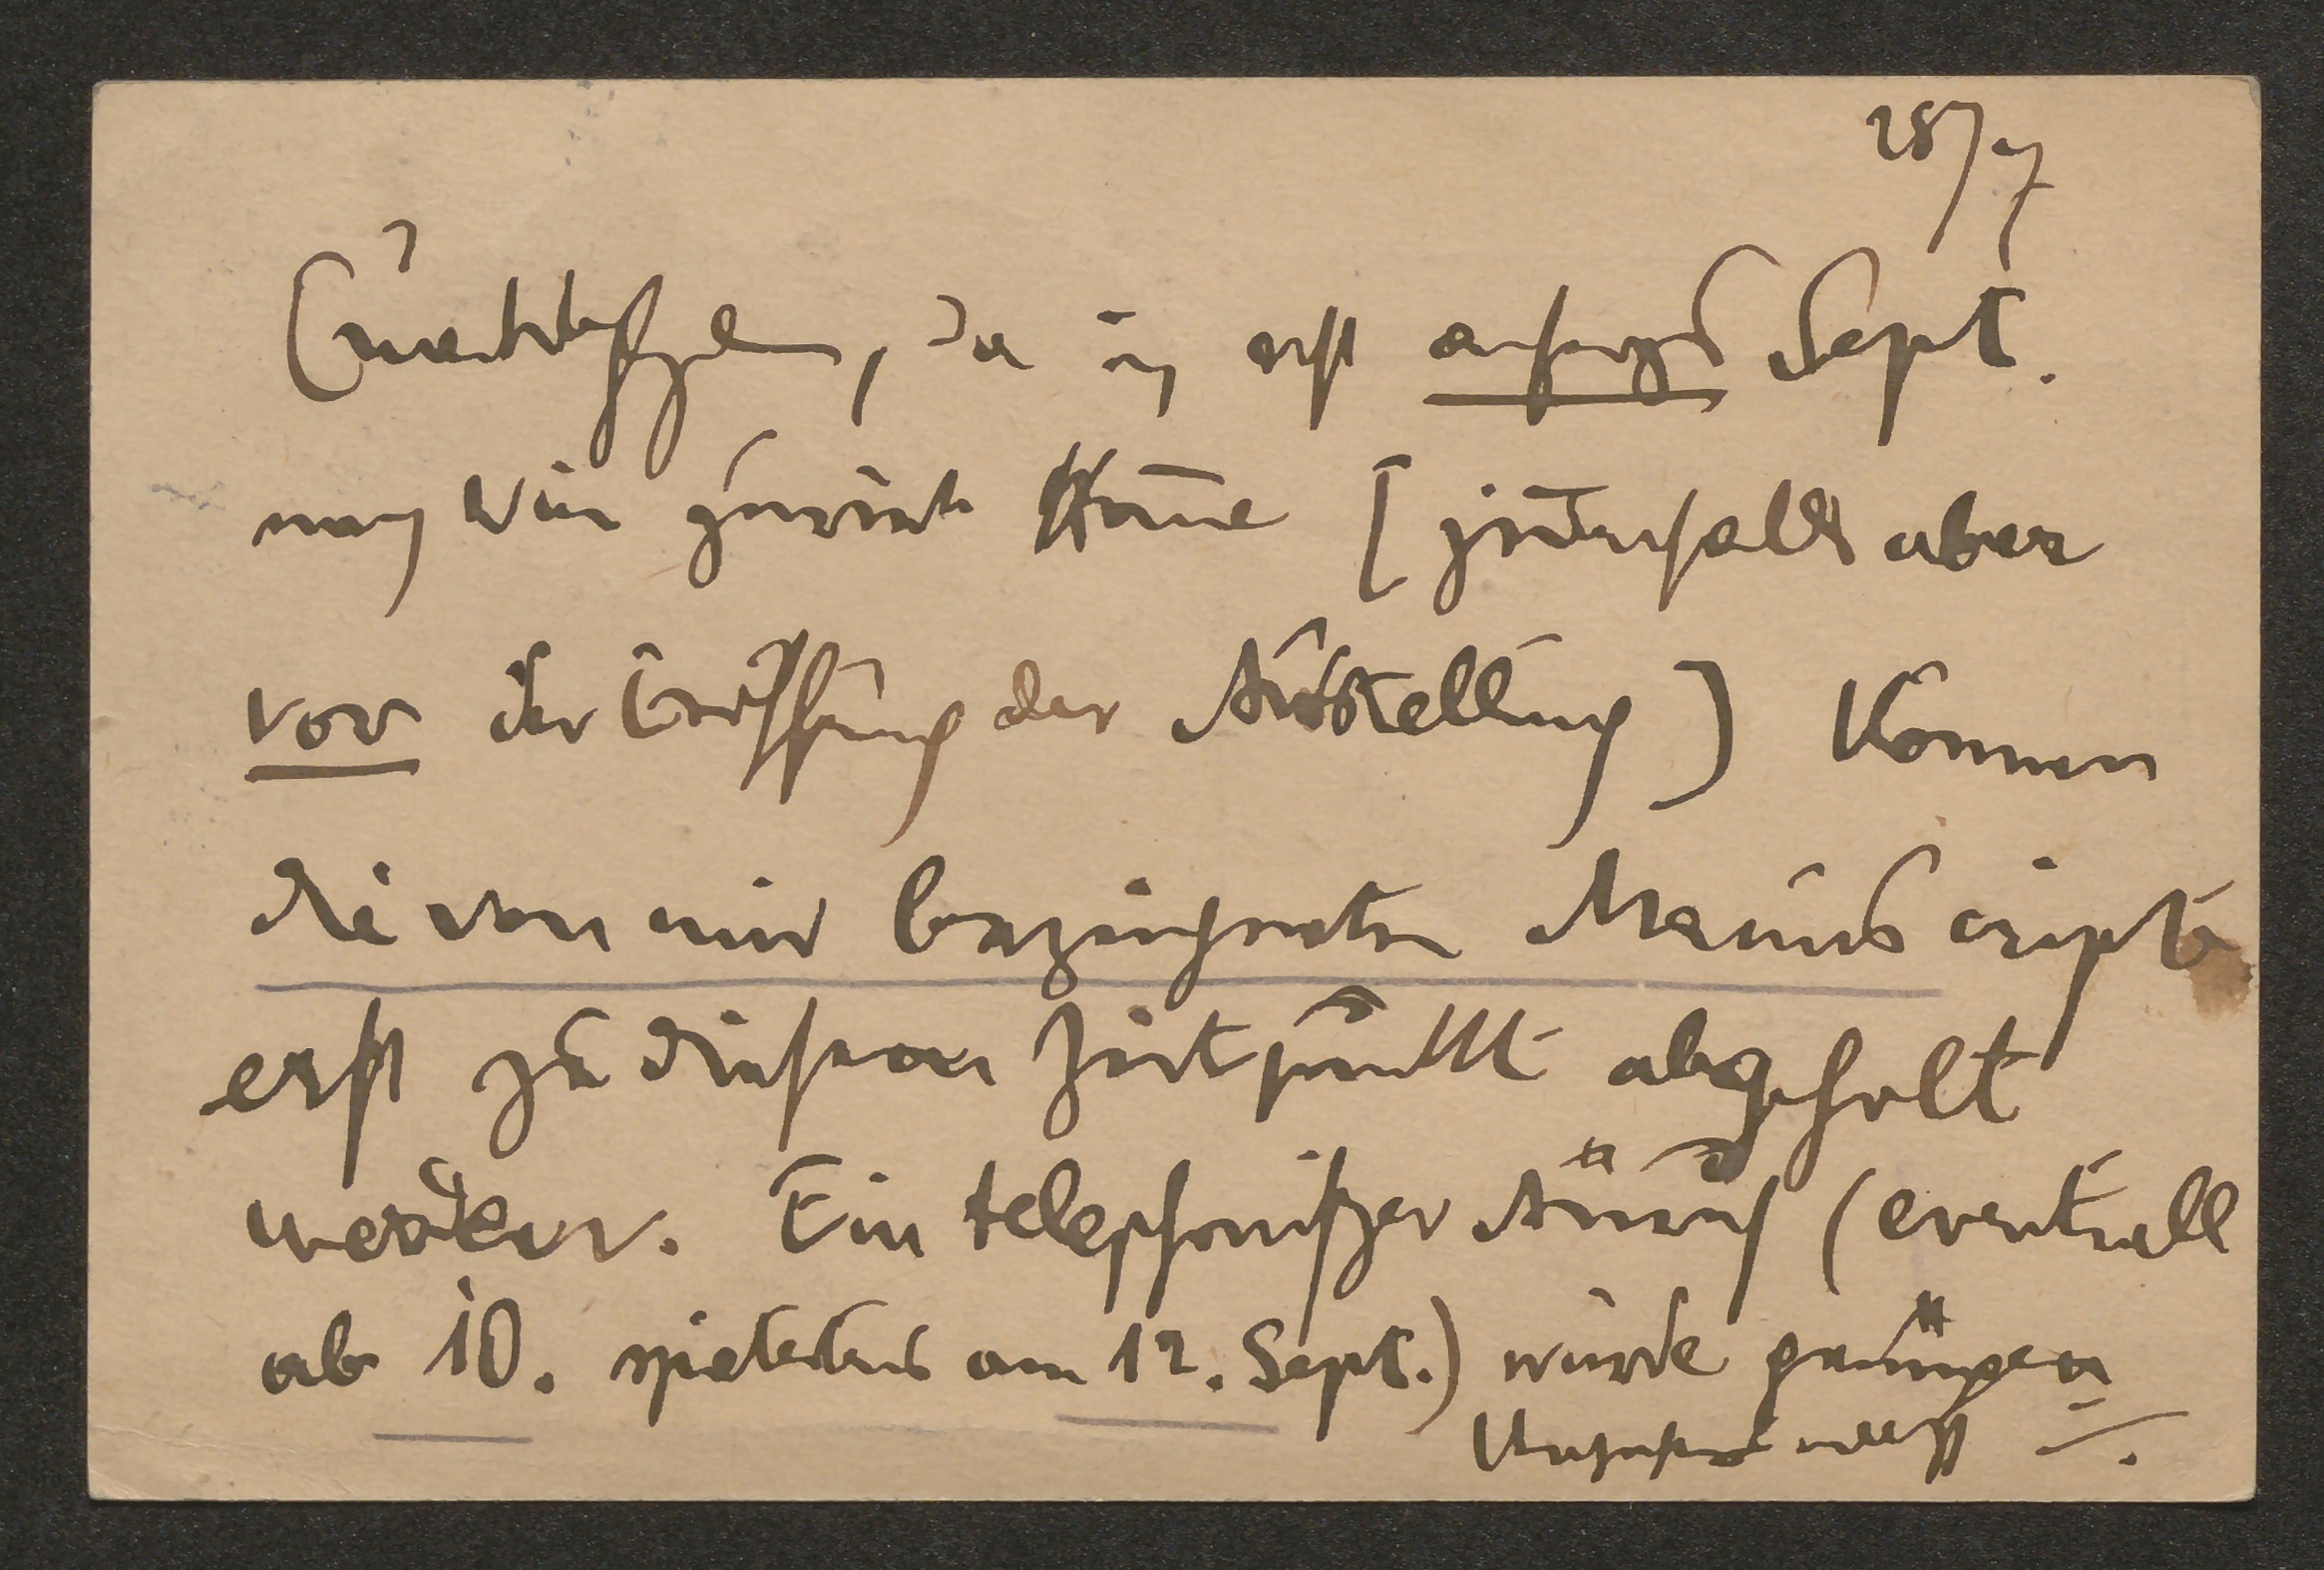 28/7
da ich erst anfangs Sept.
nach Wien zurück komme [jedenfalls aber
vor der Eröffnung der Ausstellung] können
die von mir bezeichneten Manuscripte
erst zu diesem Zeitpunkt abgeholt
werden. Ein telephonischer Anruf (eventuell
ab 10. spätestens am 12. Sept.) würde genügen